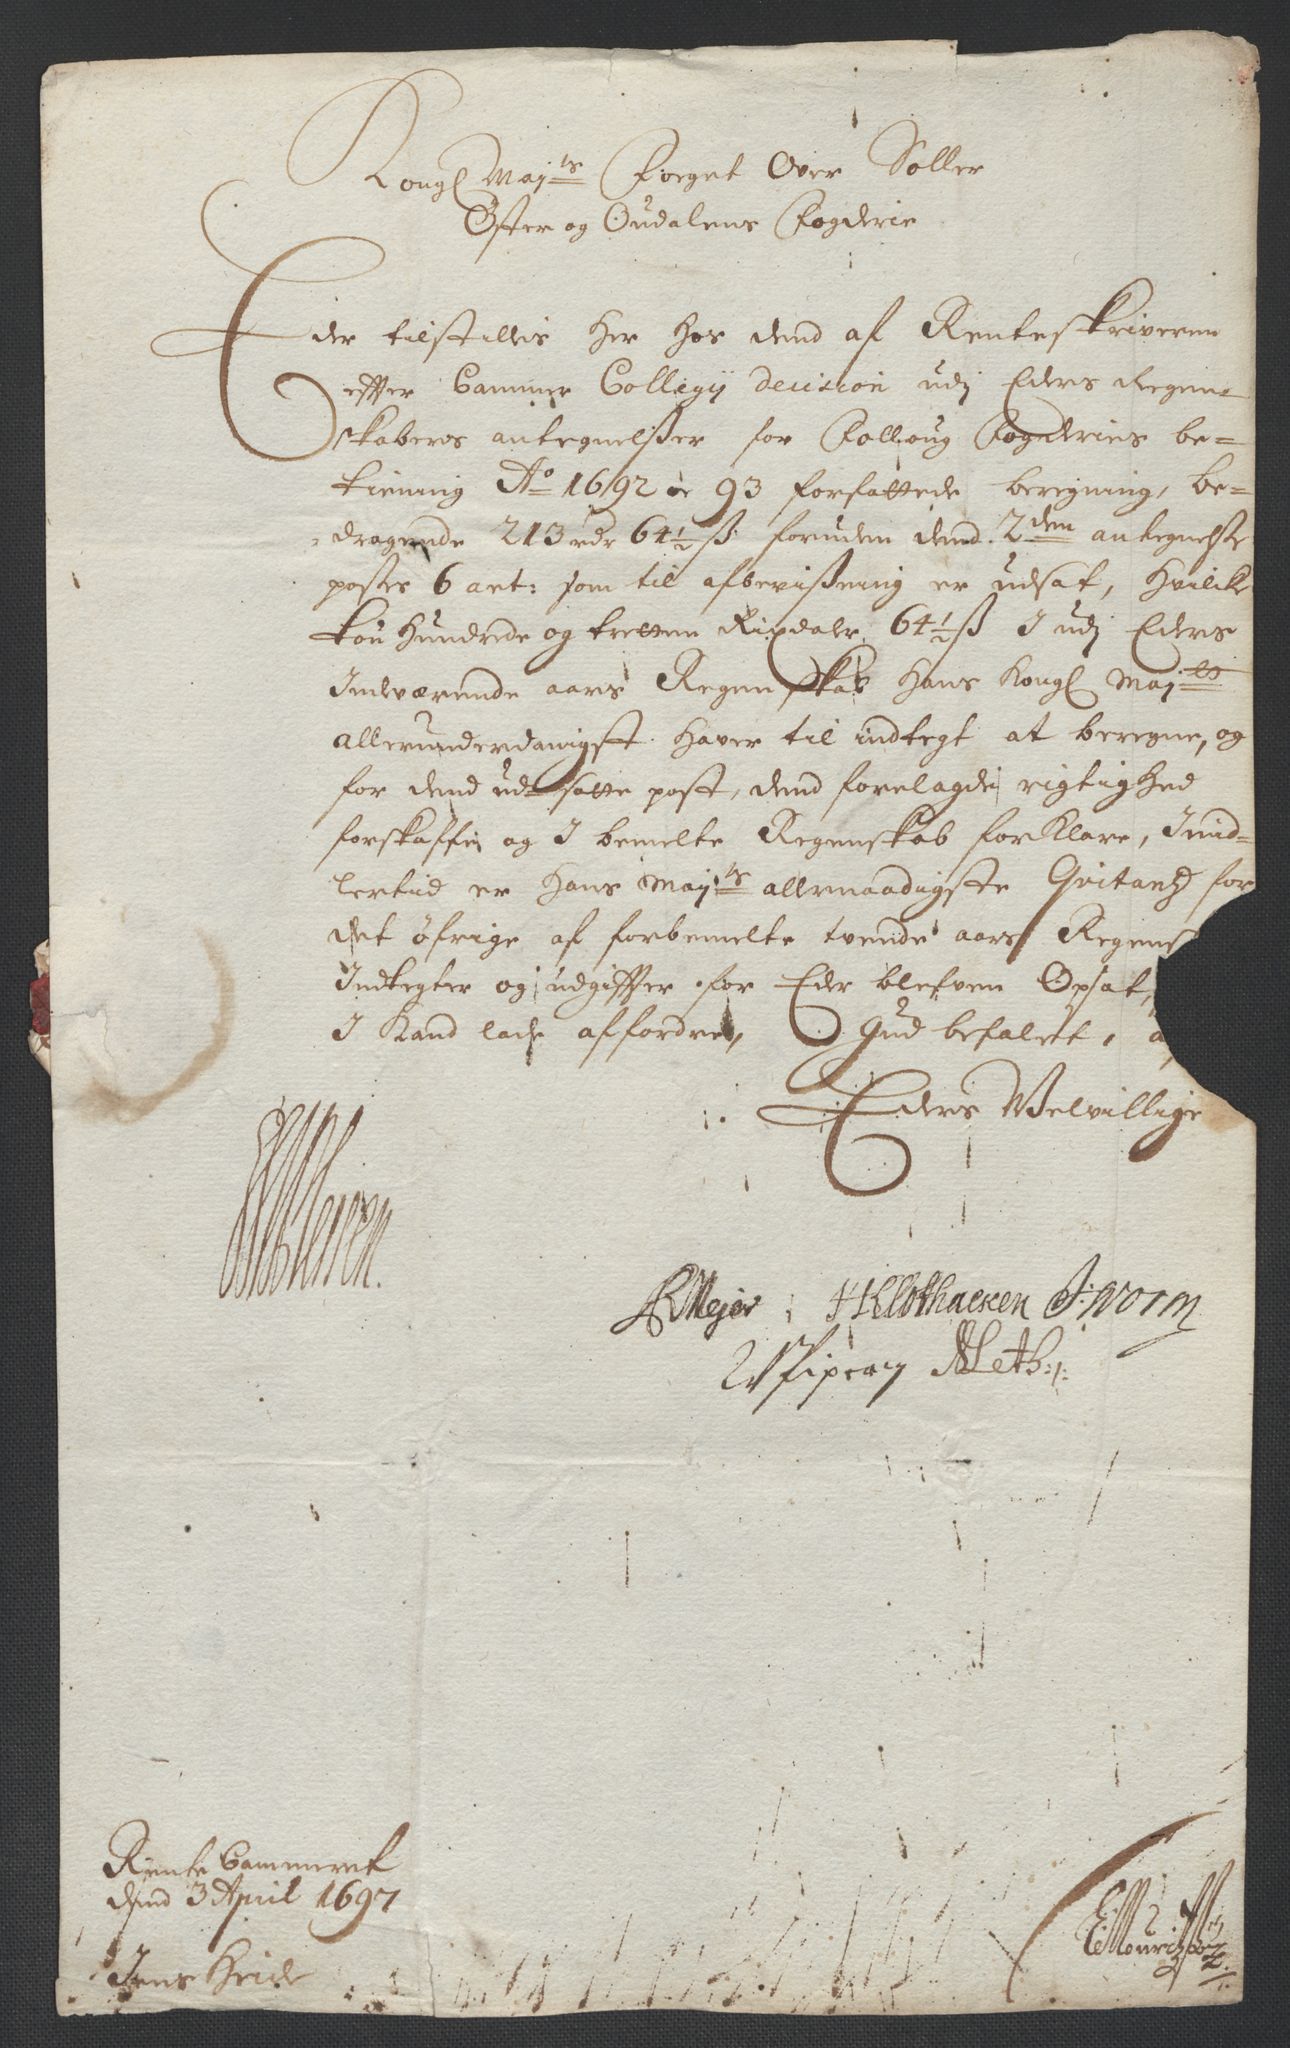 Kongl Maytˢ Foeget Over Soller
Øster og Oudalens Fogderie
Eder tilstillis her hos dend af Renteskriveren
effter Cammer Collegij decision udj Eders Regen-
skabers antegnelßer for Folloug Fogderies be-
tiening Aº 1692 oc 93 forfattede beregning, be-
dragende 213 rdr 64½ ß foruden dend 2den antegnelse
postes 6 art: som til afbevißning er udsat, hvilke
tou hundrede og tretten Rixdaler 64½ ß I udj Eders
Indeværende aars Regenskab hans Kongl Maytˢ
allerunderdanigst haver til indtegt at beregne, og
for dend udsatte post, dend forelagde rigtighed
forskaffe og I bemelte Regenskab forklare, Imid-
lertid er hans Maytˢ allernaadigste Qvitantz for
det øfrige af forbemelte tvende aars Regens
Indtegter og udgiffter for Eder blefven Opsat,
I kand lade affordre, Gud befalet,
Eders Velvillige
Meyer HKlothacken J: Worm
Pipeny Leth
Rente Cammeret
dend 3 April 1697
Jens Heide